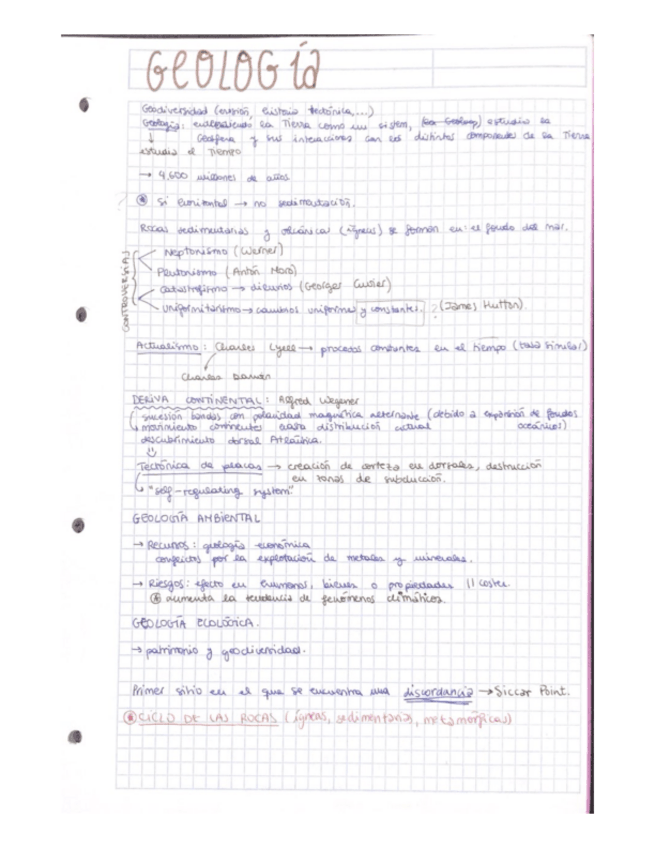 GEOLOGÍA
Geodiversidad (erosión, historia tectónica,...)
Geología: entendiendo la Tierra como un sistema, estudia la
↓ Geosfera y sus interacciones con los distintos componentes de la Tierra
estudia el Tiempo
→ 4,600 millones de años
Si horizontal → no sedimentación.
Rocas sedimentarias y volcánicas (ígneas) se forman en el fondo del mar.
CONTROVERSIA
Neptonismo (Werner)
Plutonismo (Antón Moro)
Catastrofismo → diluvios (Georges Cuvier)
Uniformitarismo → cambios uniformes y constantes. ? (James Hutton).
Actualismo: Charles Lyell → procesos constantes en el tiempo (tasa similar)
Charles Darwin
DERIVA CONTINENTAL: Alfred Wegener
sucesión bandas con polaridad magnética alternante (debido a expansión de fondos
movimiento continentes hasta distribución actual oceánicos)
descubrimiento dorsal Atlántica.
Tectónica de placas → creación de corteza en dorsales, destrucción
en zonas de subducción.
"self-regulating system"
GEOLOGÍA AMBIENTAL
→ Recursos: geología económica
conflictos por la explotación de metales y minerales.
→ Riesgos: efecto en humanos, bienes o propiedades // costes
aumenta la tendencia de fenómenos climáticos.
GEOLOGÍA ECOLÓGICA.
→ patrimonio y geodiversidad.
Primer sitio en el que se encuentra una discordancia → Siccar Point.
CICLO DE LAS ROCAS (ígneas, sedimentarias, metamórficas)